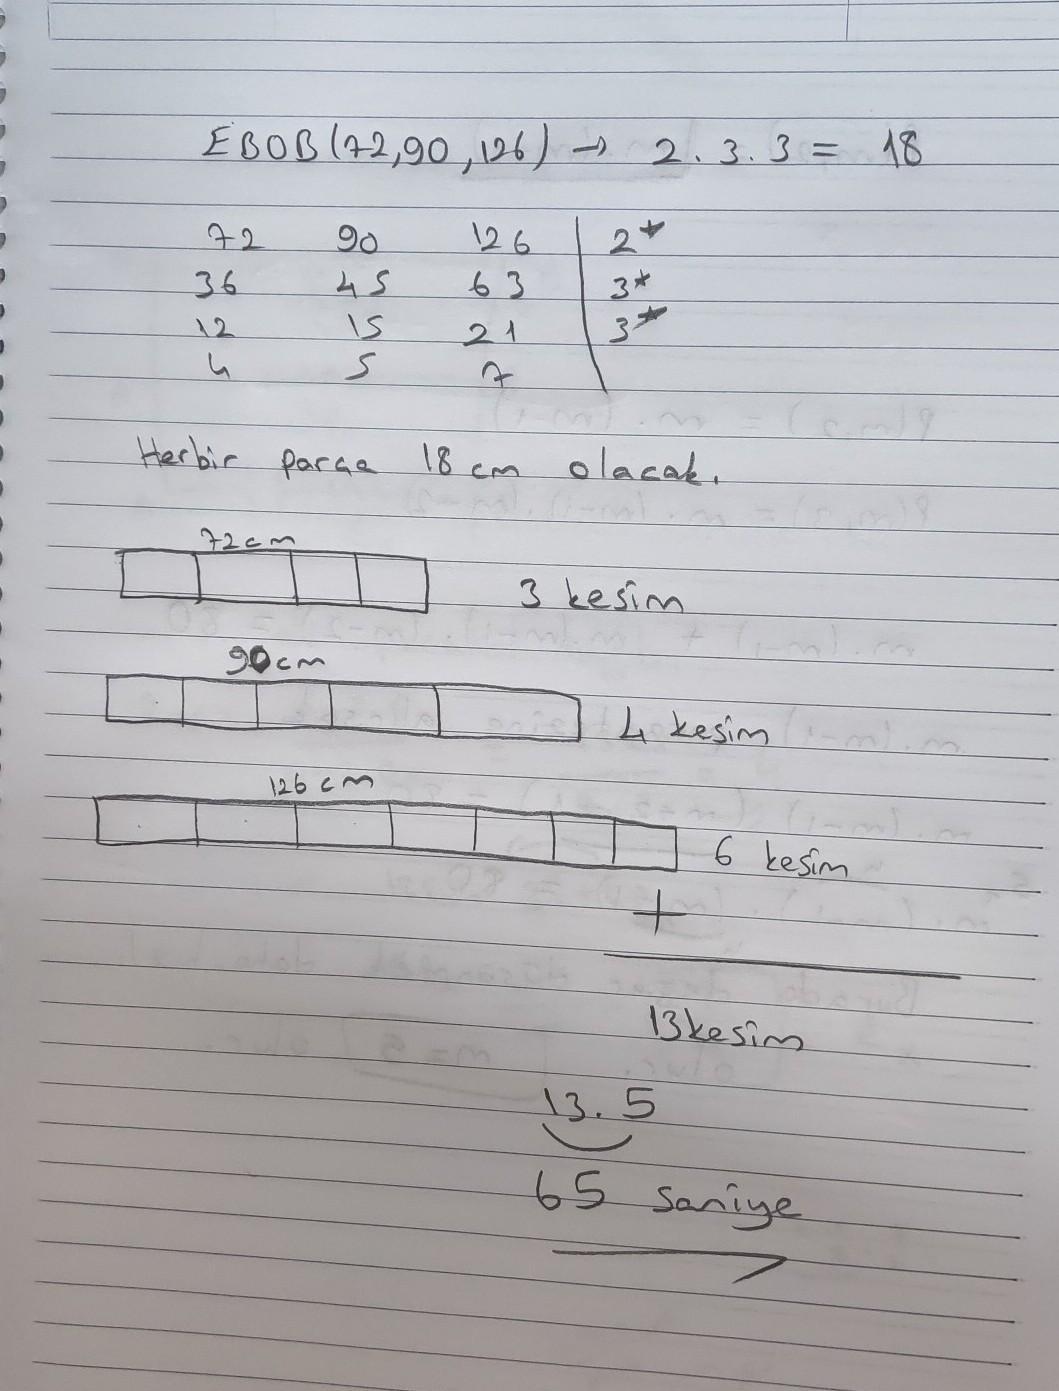 EBOB(72,90,126) → 2.3.3 = 18
72 90 126 | 2*
36 45 63 | 3*
12 15 21 | 3*
4 5 7
Herbir parça 18 cm olacak.
72cm
3 kesim
90cm
4 kesim
126 cm
6 kesim
+
13kesim
13.5
65 saniye